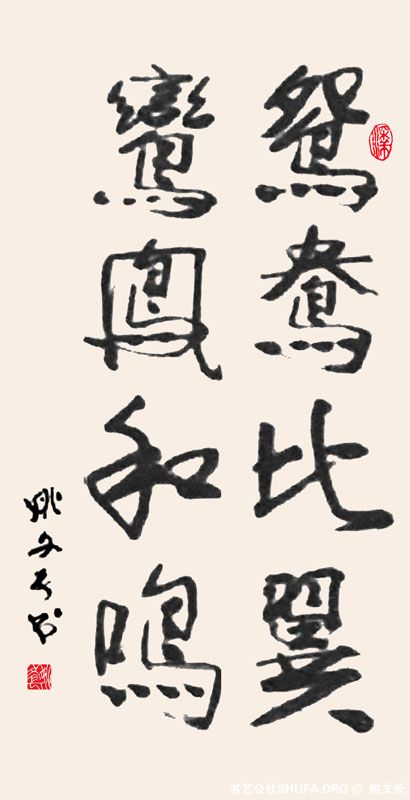 鸳鸯比翼
鸾凤和鸣
姚文长书
书艺公社SHUFA.ORG @ 姚文长